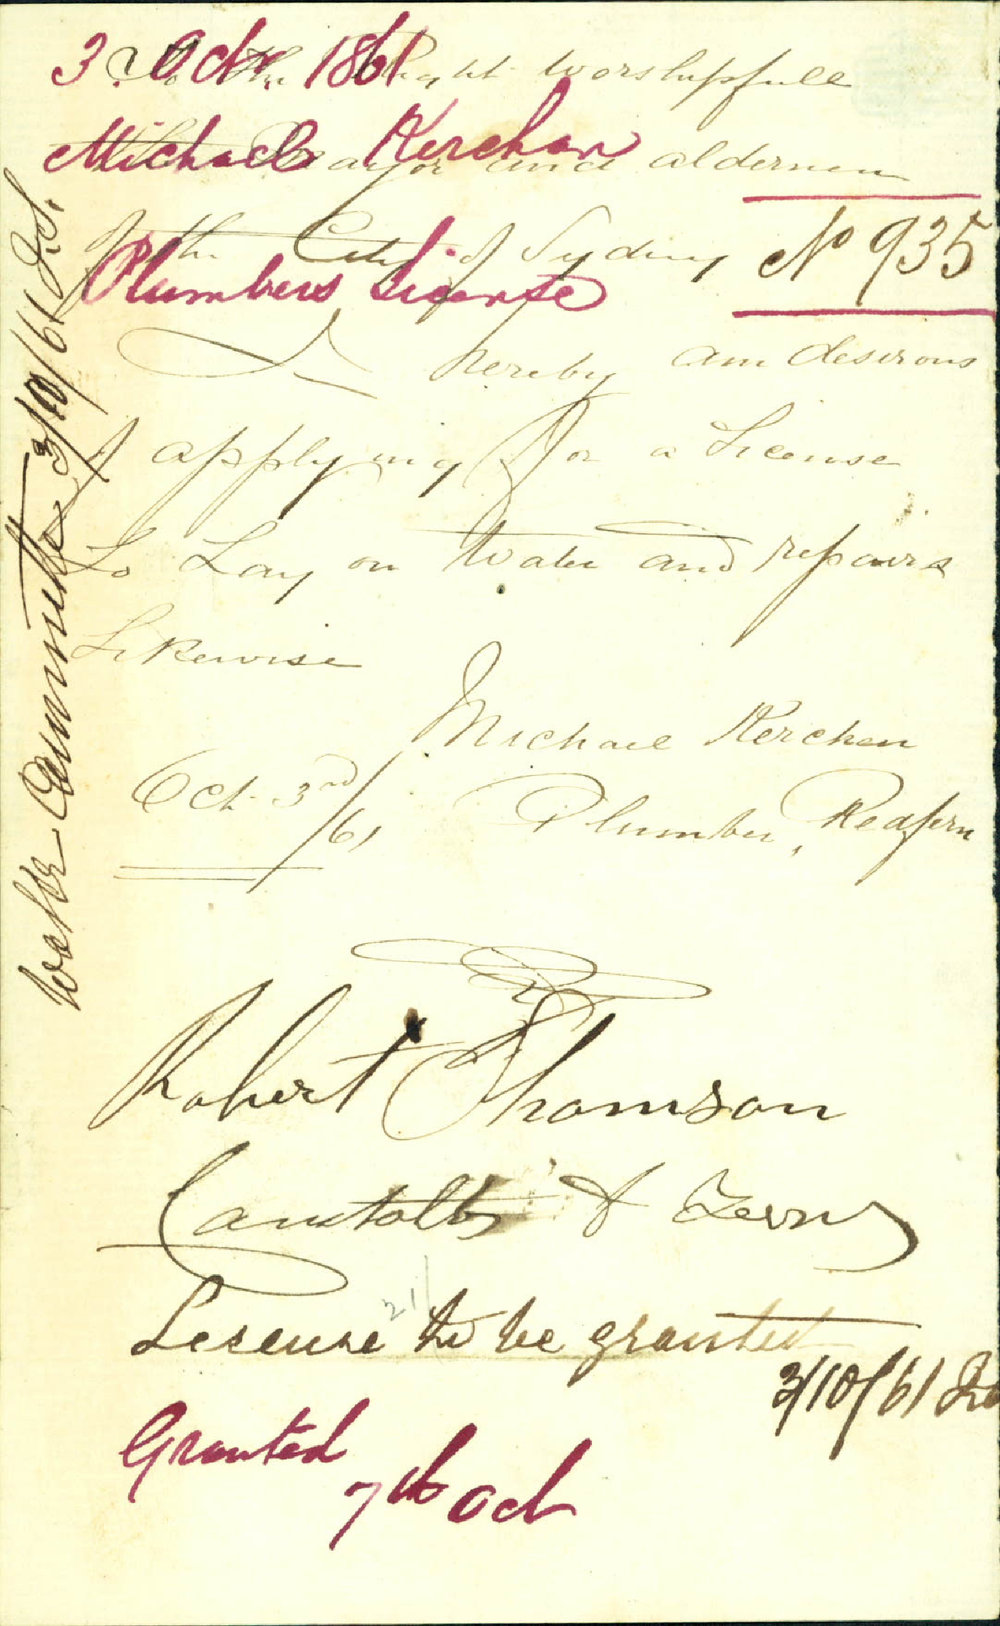 3 Oct. 1861
Michael Kerchan
Plumbers License
No 935
To the Right worshipfull
the Mayor and aldermen
of the City of Sydney
I hereby am desirous
of applying for a License
To Lay on Water and repairs
Likewise
Michael Kerchen
Oct. 3rd/61
Plumber, Redfern
Water Committee 3/10/61
Robert Thomson
21/
Lesense to be granted
3/10/61
Granted
7th Oct